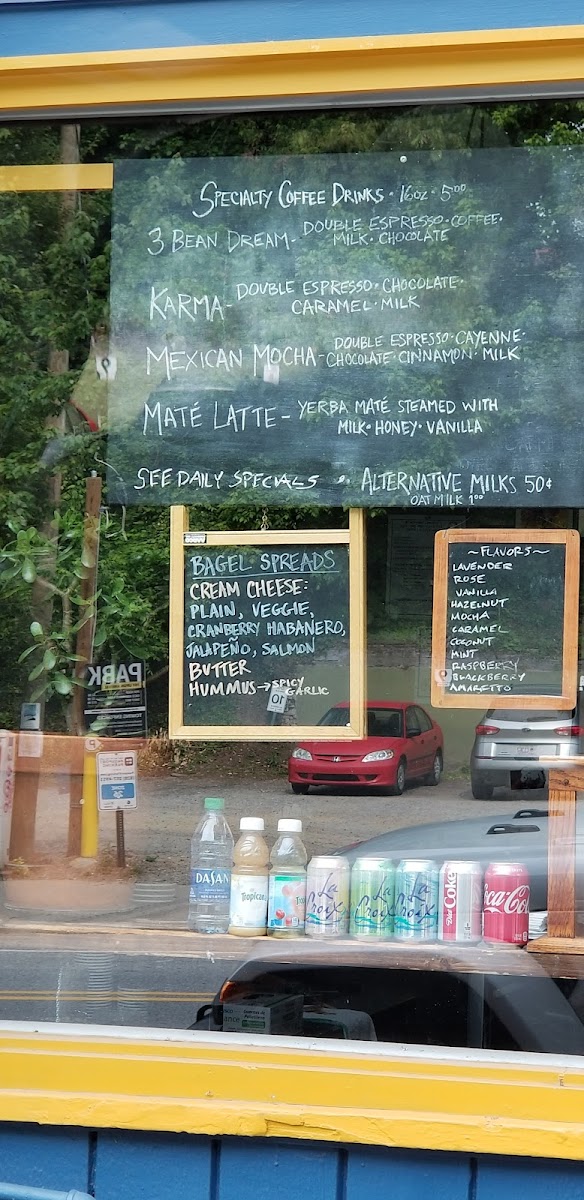 SPECIALTY COFFEE DRINKS • 16oz • 5⁰⁰
3 BEAN DREAM - DOUBLE ESPRESSO • COFFEE •
MILK • CHOCOLATE
KARMA - DOUBLE ESPRESSO • CHOCOLATE •
CARAMEL • MILK
MEXICAN MOCHA - DOUBLE ESPRESSO • CAYENNE •
CHOCOLATE • CINNAMON • MILK
MATÉ LATTE - YERBA MATÉ STEAMED WITH
MILK • HONEY • VANILLA
SEE DAILY SPECIALS • ALTERNATIVE MILKS 50¢
OAT MILK 1⁰⁰
BAGEL SPREADS
CREAM CHEESE:
PLAIN, VEGGIE,
CRANBERRY HABANERO,
JALAPEÑO, SALMON
BUTTER
HUMMUS → SPICY
GARLIC
~FLAVORS~
LAVENDER
ROSE
VANILLA
HAZELNUT
MOCHA
CARAMEL
COCONUT
MINT
RASPBERRY
BLACKBERRY
AMARETTO
PARK
10
DASANI
Tropicana
La Croix
La Croix
La Croix
Diet Coke
Coca-Cola